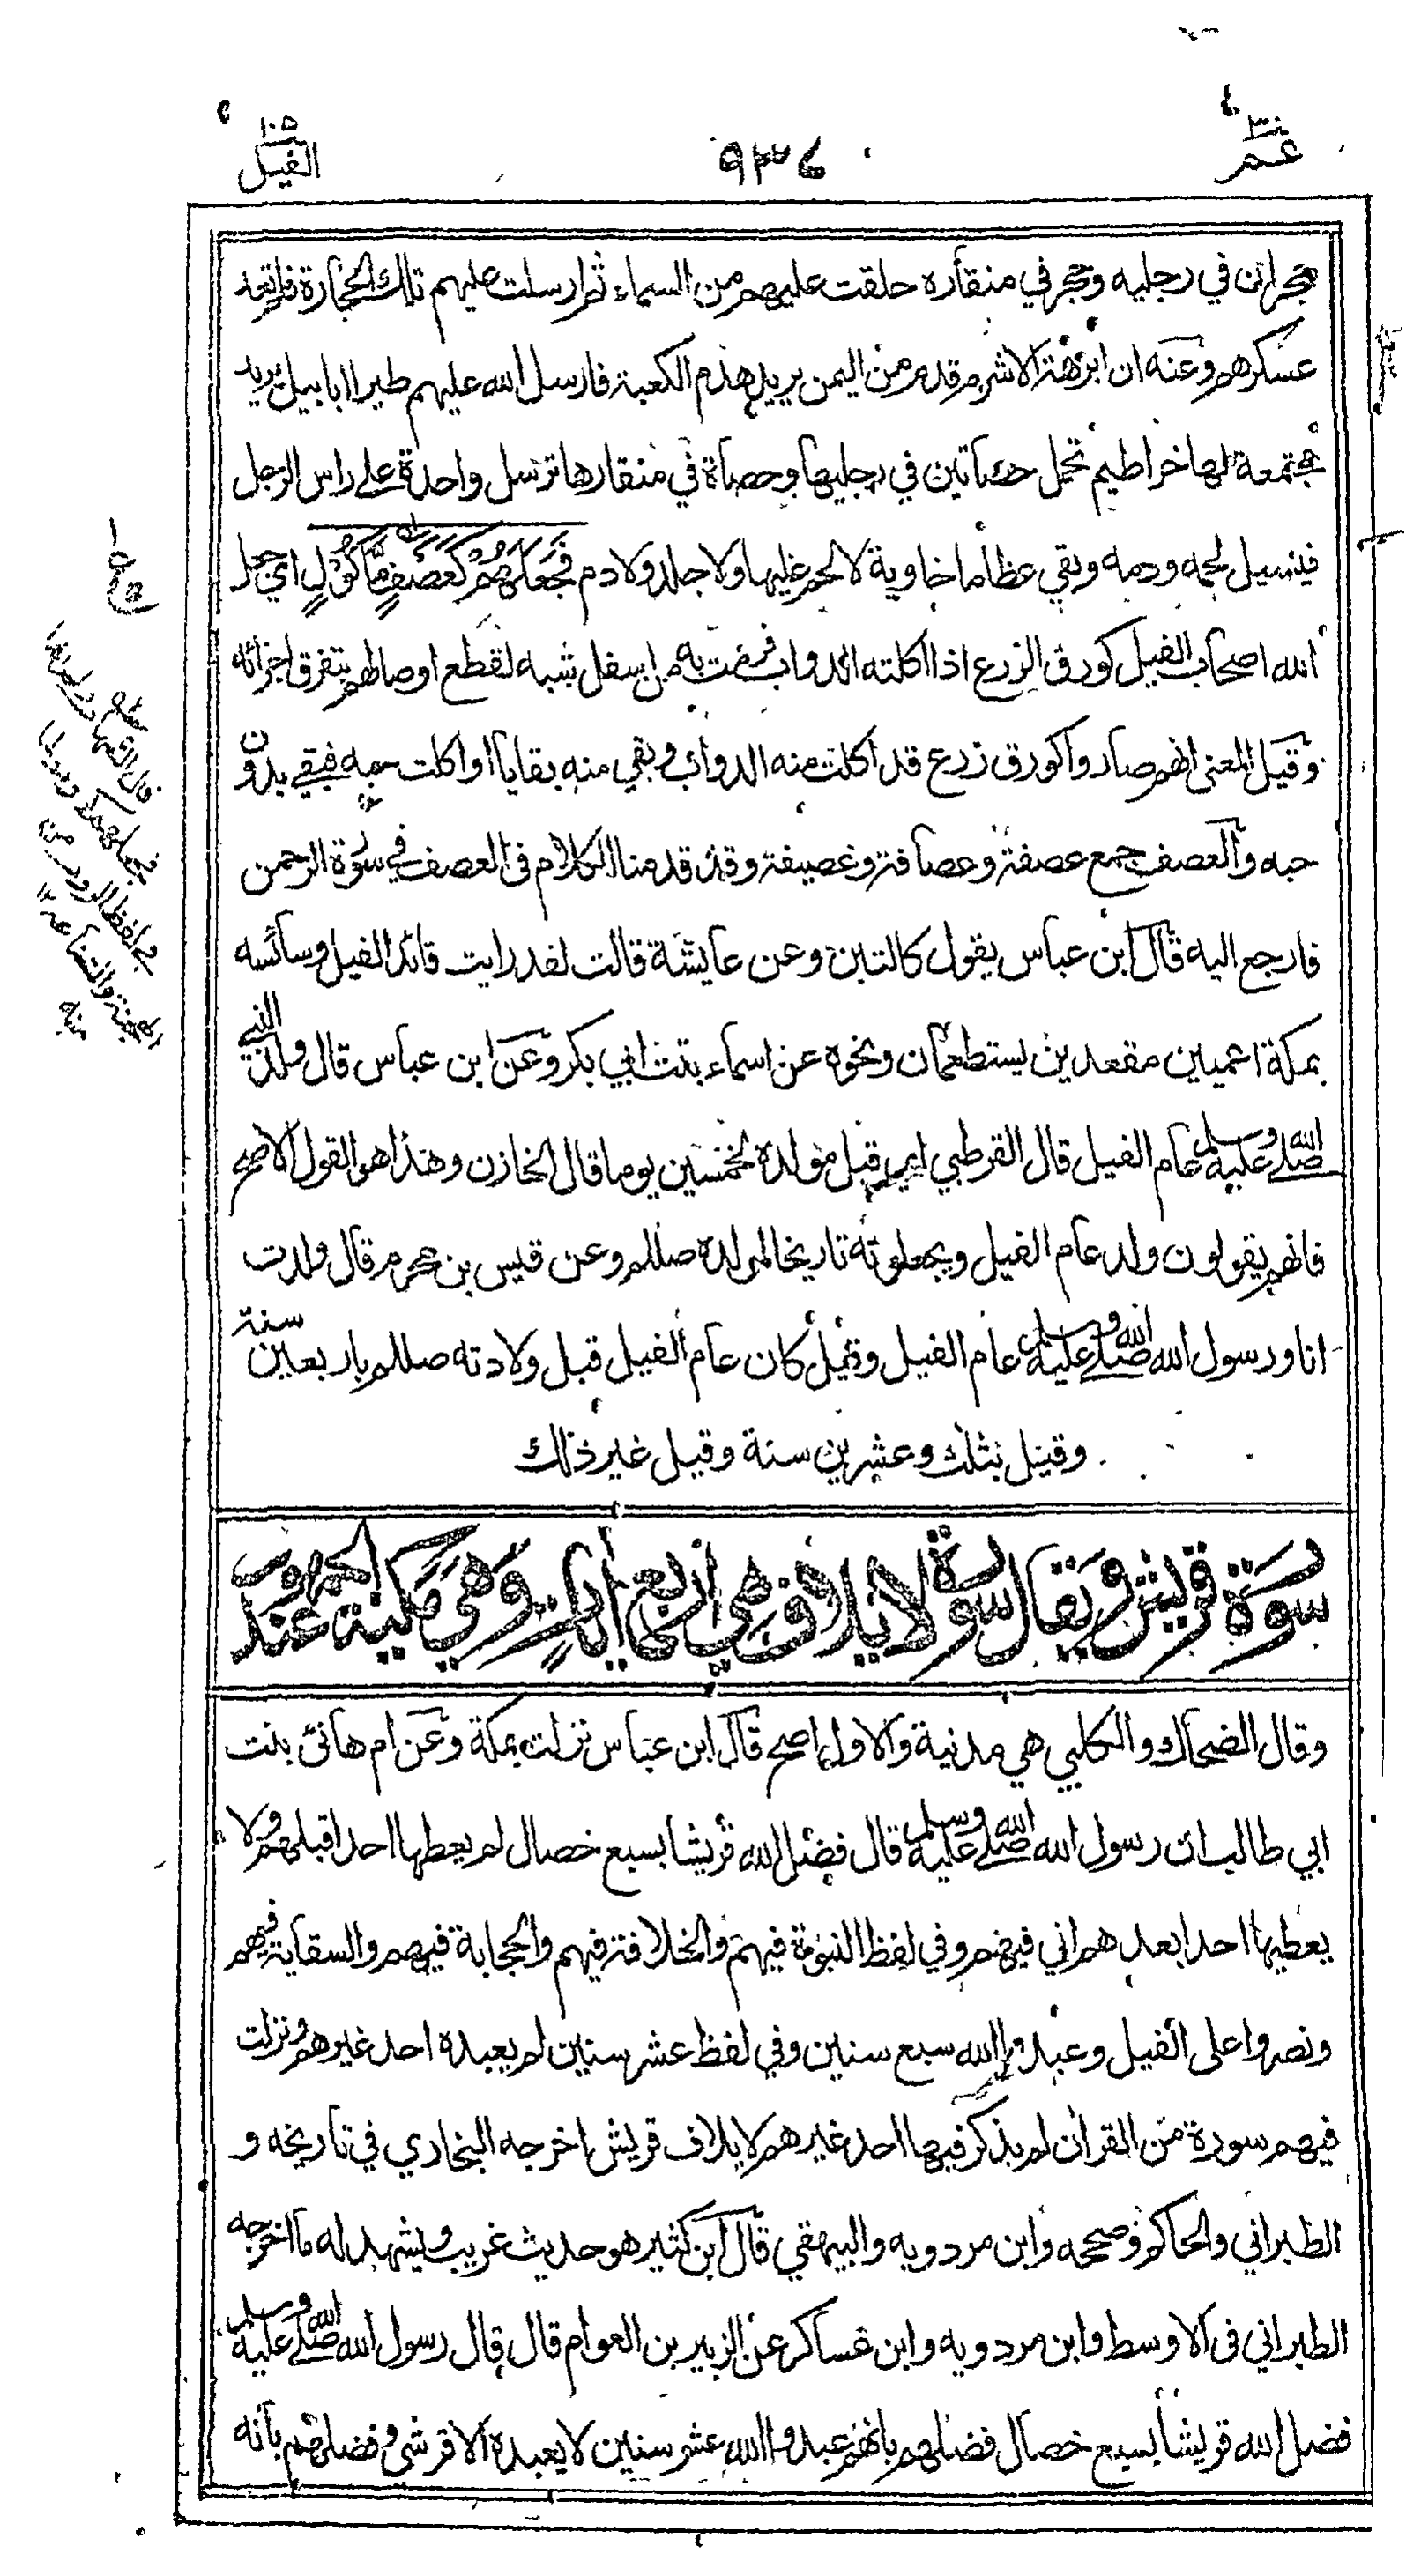 عم ٣٠
٩٣٦
الفيل ١٠٥
حجران في رجليه وحجر في منقاره حلقت عليهم من السماء ثم ارسلت عليهم تلك الحجارة فلم تعد
عسكرهم وعنه ان ابرهة الاشرم قدم من اليمن يريد هدم الكعبة فارسل الله عليهم طيرا ابابيل يريد
مجتمعة لها خراطيم تحمل حصاتين في رجليها وحصاة في منقارها ترسل واحدة على راس الرجل
فيسيل لحمه ودمه وتبقى عظاما خاوية لا لحم عليها ولا جلد ولا دم فَجَعَلَهُمْ كَعَصْفٍ مَّأْكُوْلٍ اي جعل
الله اصحاب الفيل كورق الزرع اذا اكلته الدواب فرمت به من اسفل شبه لقطع اوصالهم بتفرق اجزائه
وقيل المعنى انهم صاروا كورق زرع قد اكلت منه الدواب وبقي منه بقايا او اكلت حبه فبقي بدون
حبه والعصف جمع عصفة وعصافة وعصيفة وقد قدمنا الكلام في العصف في سورة الرحمن
فارجع اليه قال ابن عباس يقول كالتبن وعن عايشة قالت لقد رايت قائد الفيل وسائسه
بمكة اعميين مقعدين يستطعمان ونحوه عن اسماء بنت ابي بكر وعن ابن عباس قال ولد النبي
صلى الله عليه وسلم عام الفيل قال القرطبي اي قبل مولده بخمسين يوما قال الخازن وهذا هو القول الاصح
فانهم يقولون ولد عام الفيل ويجعلونه تاريخا لمولده صللم وعن قيس بن مخرمة قال ولدت
انا ورسول الله صلى الله عليه وسلم عام الفيل وقيل كان عام الفيل قبل ولادته صللم باربعين سنة
وقيل بثلث وعشرين سنة وقيل غير ذلك
سورة قريش ويقال سورة لايلاف وهي اربع ايات وهي مكية عند الجمهور
وقال الضحاك والكلبي هي مدنية والاول اصح قال ابن عباس نزلت بمكة وعن ام هانئ بنت
ابي طالب ان رسول الله صلى الله عليه وسلم قال فضل الله قريشا بسبع خصال لم يعطها احدا قبلهم ولا
يعطيها احدا بعدهم اني فيهم وفي لفظ النبوة فيهم والخلافة فيهم والحجابة فيهم والسقاية فيهم
ونصروا على الفيل وعبدوا الله سبع سنين وفي لفظ عشر سنين لم يعبده احد غيرهم ونزلت
فيهم سورة من القران لم يذكر فيها احد غيرهم لايلاف قريش اخرجه البخاري في تاريخه و
الطبراني والحاكم وصححه وابن مردويه والبيهقي قال ابن كثير هو حديث غريب ويشهد له ما اخرجه
الطبراني في الاوسط وابن مردويه وابن عساكر عن الزبير بن العوام قال قال رسول الله صلى الله عليه وسلم
فضل الله قريشا بسبع خصال فضلهم بانهم عبدوا الله عشر سنين لا يعبده الا قرشي وفضلهم بانه